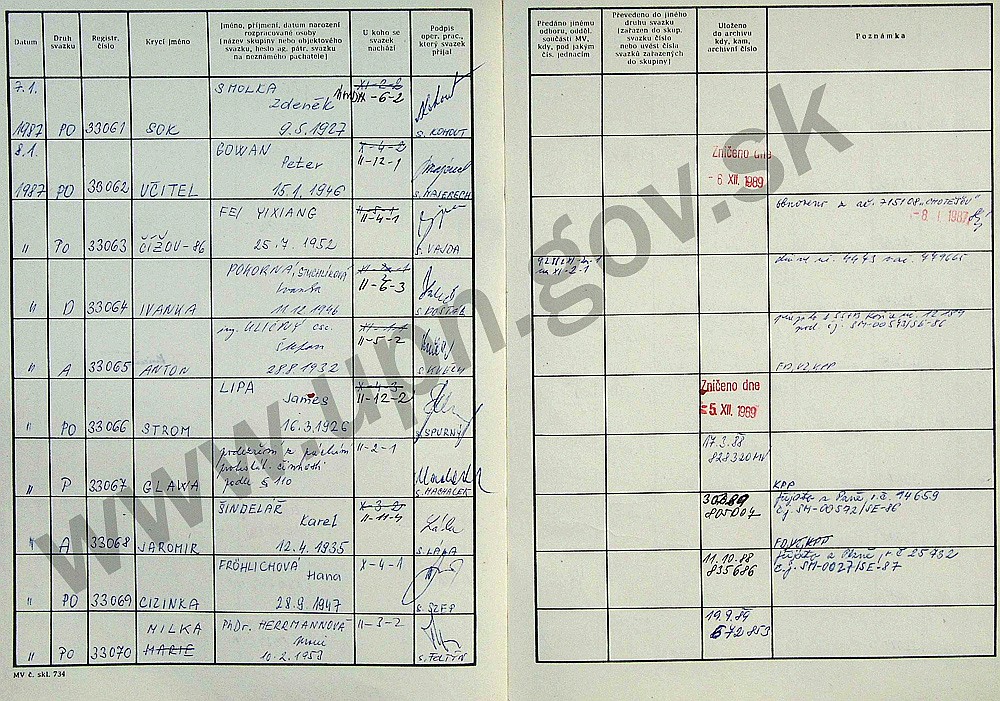 Datum
Druh svazku
Registr. číslo
Krycí jméno
Jméno, příjmení, datum narození
rozpracované osoby
(název skupiny nebo objektového
svazku, heslo ag. pátr. svazku
na neznámého pachatele)
U koho se
svazek
nachází
Podpis
oper. prac.,
který svazek
přijal
Předáno jinému
odboru, odděl.
součásti MV,
kdy, pod jakým
čís. jednacím
Převedeno do jiného
druhu svazku
(zařazen do skup.
svazku číslo
nebo uvést čísla
svazků zařazených
do skupiny)
Uloženo
do archivu
kdy, kam,
archivní číslo
Poznámka
7.1.
1987 PO 33061 SOK
SMOLKA
Zdeněk
9.5.1927
XI-2-2
II-6-2
s. KOHOUT
8.1.
1987 PO 33062 UČITEL
GOWAN
Peter
15.1.1946
X-4-2
II-12-1
Zničeno dne
- 6. XII. 1989
" PO 33063 ČÍŽOV-86
FEI YIXIANG
25.7.1952
II-4-1
s. VAJDA
-8. 1. 1987
" D 33064 IVANKA
POKORNÁ,
Ivanka
11.12.1946
II-6-3
" A 33065 ANTON
ing. ULIČNÝ csc.
Štefan
28.8.1932
II-5-2
" PO 33066 STROM
LIPA
James
16.3.1926
X-4-3
II-12-2
s. SPURNÝ
Zničeno dne
- 5. XII. 1989
" P 33067 GLAWA
podezření z páchání
protistát. činnosti
podle § 110
II-2-1
s. MACHÁLEK
17.3.88
828320 MV
KPP
" A 33068 JAROMÍR
ŠINDELÁŘ
Karel
12.4.1935
II-11-4
s. LÁLA
805004
č.j. SM-00592/SE-86
" PO 33069 CIZINKA
FRÖHLICHOVÁ
Hana
28.9.1947
X-4-1
11.10.88
835686
č.j. SM-0027/SE-87
MILKA
" PO 33070 MARIE
PhDr. HERRMANNOVÁ
10.2.1953
II-3-2
19.9.89
672853
MV č. skl. 734
www.upn.gov.sk